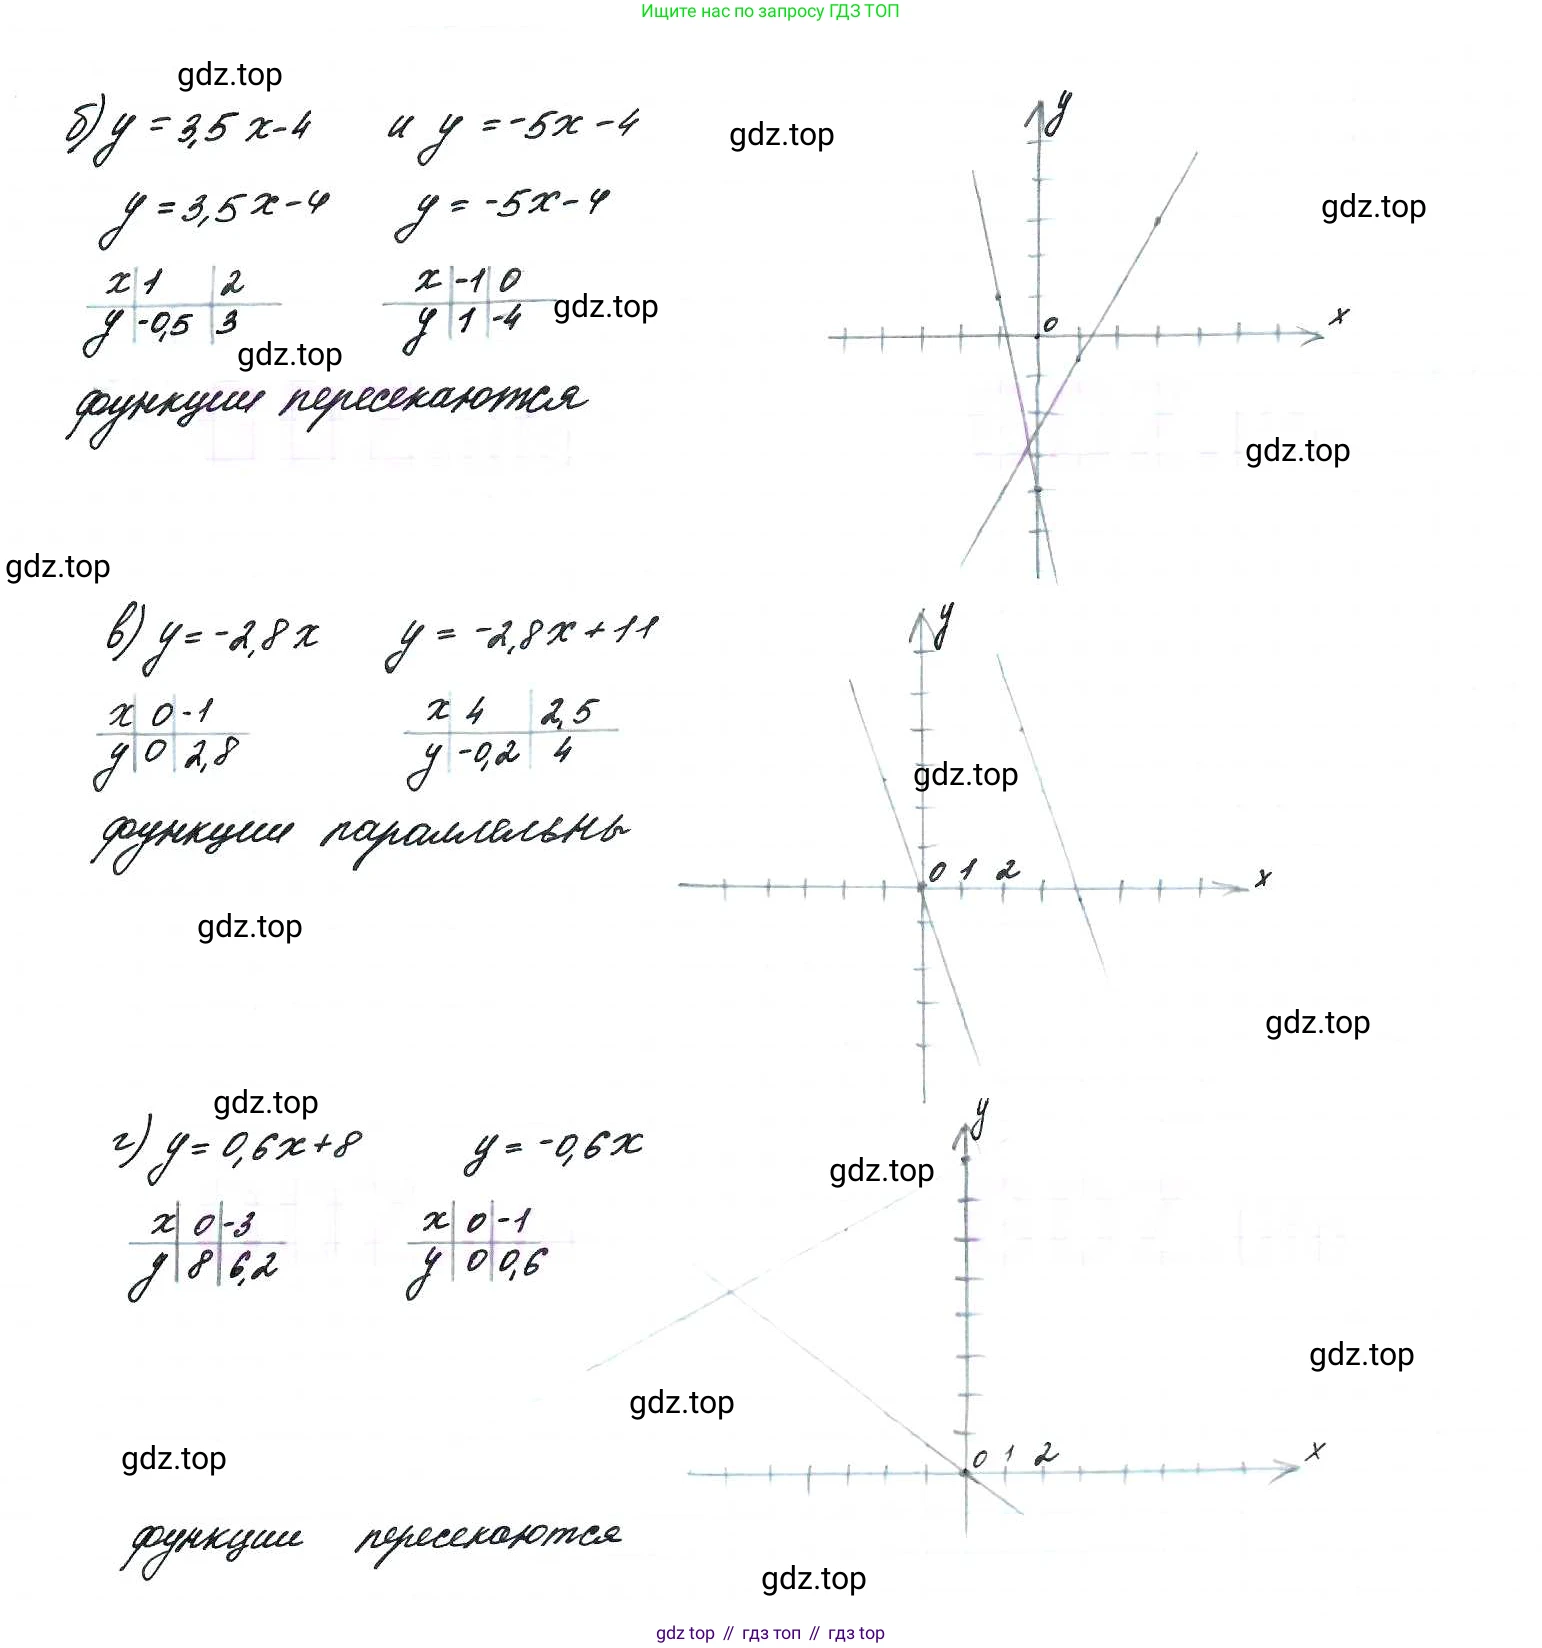 Ищите нас по запросу ГДЗ ТОП
gdz.top
б) y = 3,5x-4 и y = -5x-4
gdz.top
y
y = 3,5x-4 y = -5x-4
gdz.top
x 1 2 x -1 0
gdz.top
y -0,5 3 y 1 -4
0 x
gdz.top
функции пересекаются
gdz.top
gdz.top
в) y = -2,8x y = -2,8x+11
y
x 0 -1 x 4 2,5
y 0 2,8 y -0,2 4
gdz.top
функции параллельны
0 1 2 x
gdz.top
gdz.top
gdz.top
y
г) y = 0,6x+8 y = -0,6x
gdz.top
x 0 -3 x 0 -1
y 8 6,2 y 0 0,6
gdz.top
gdz.top
gdz.top
0 1 2 x
функции пересекаются
gdz.top
gdz top // гдз топ // гдз top